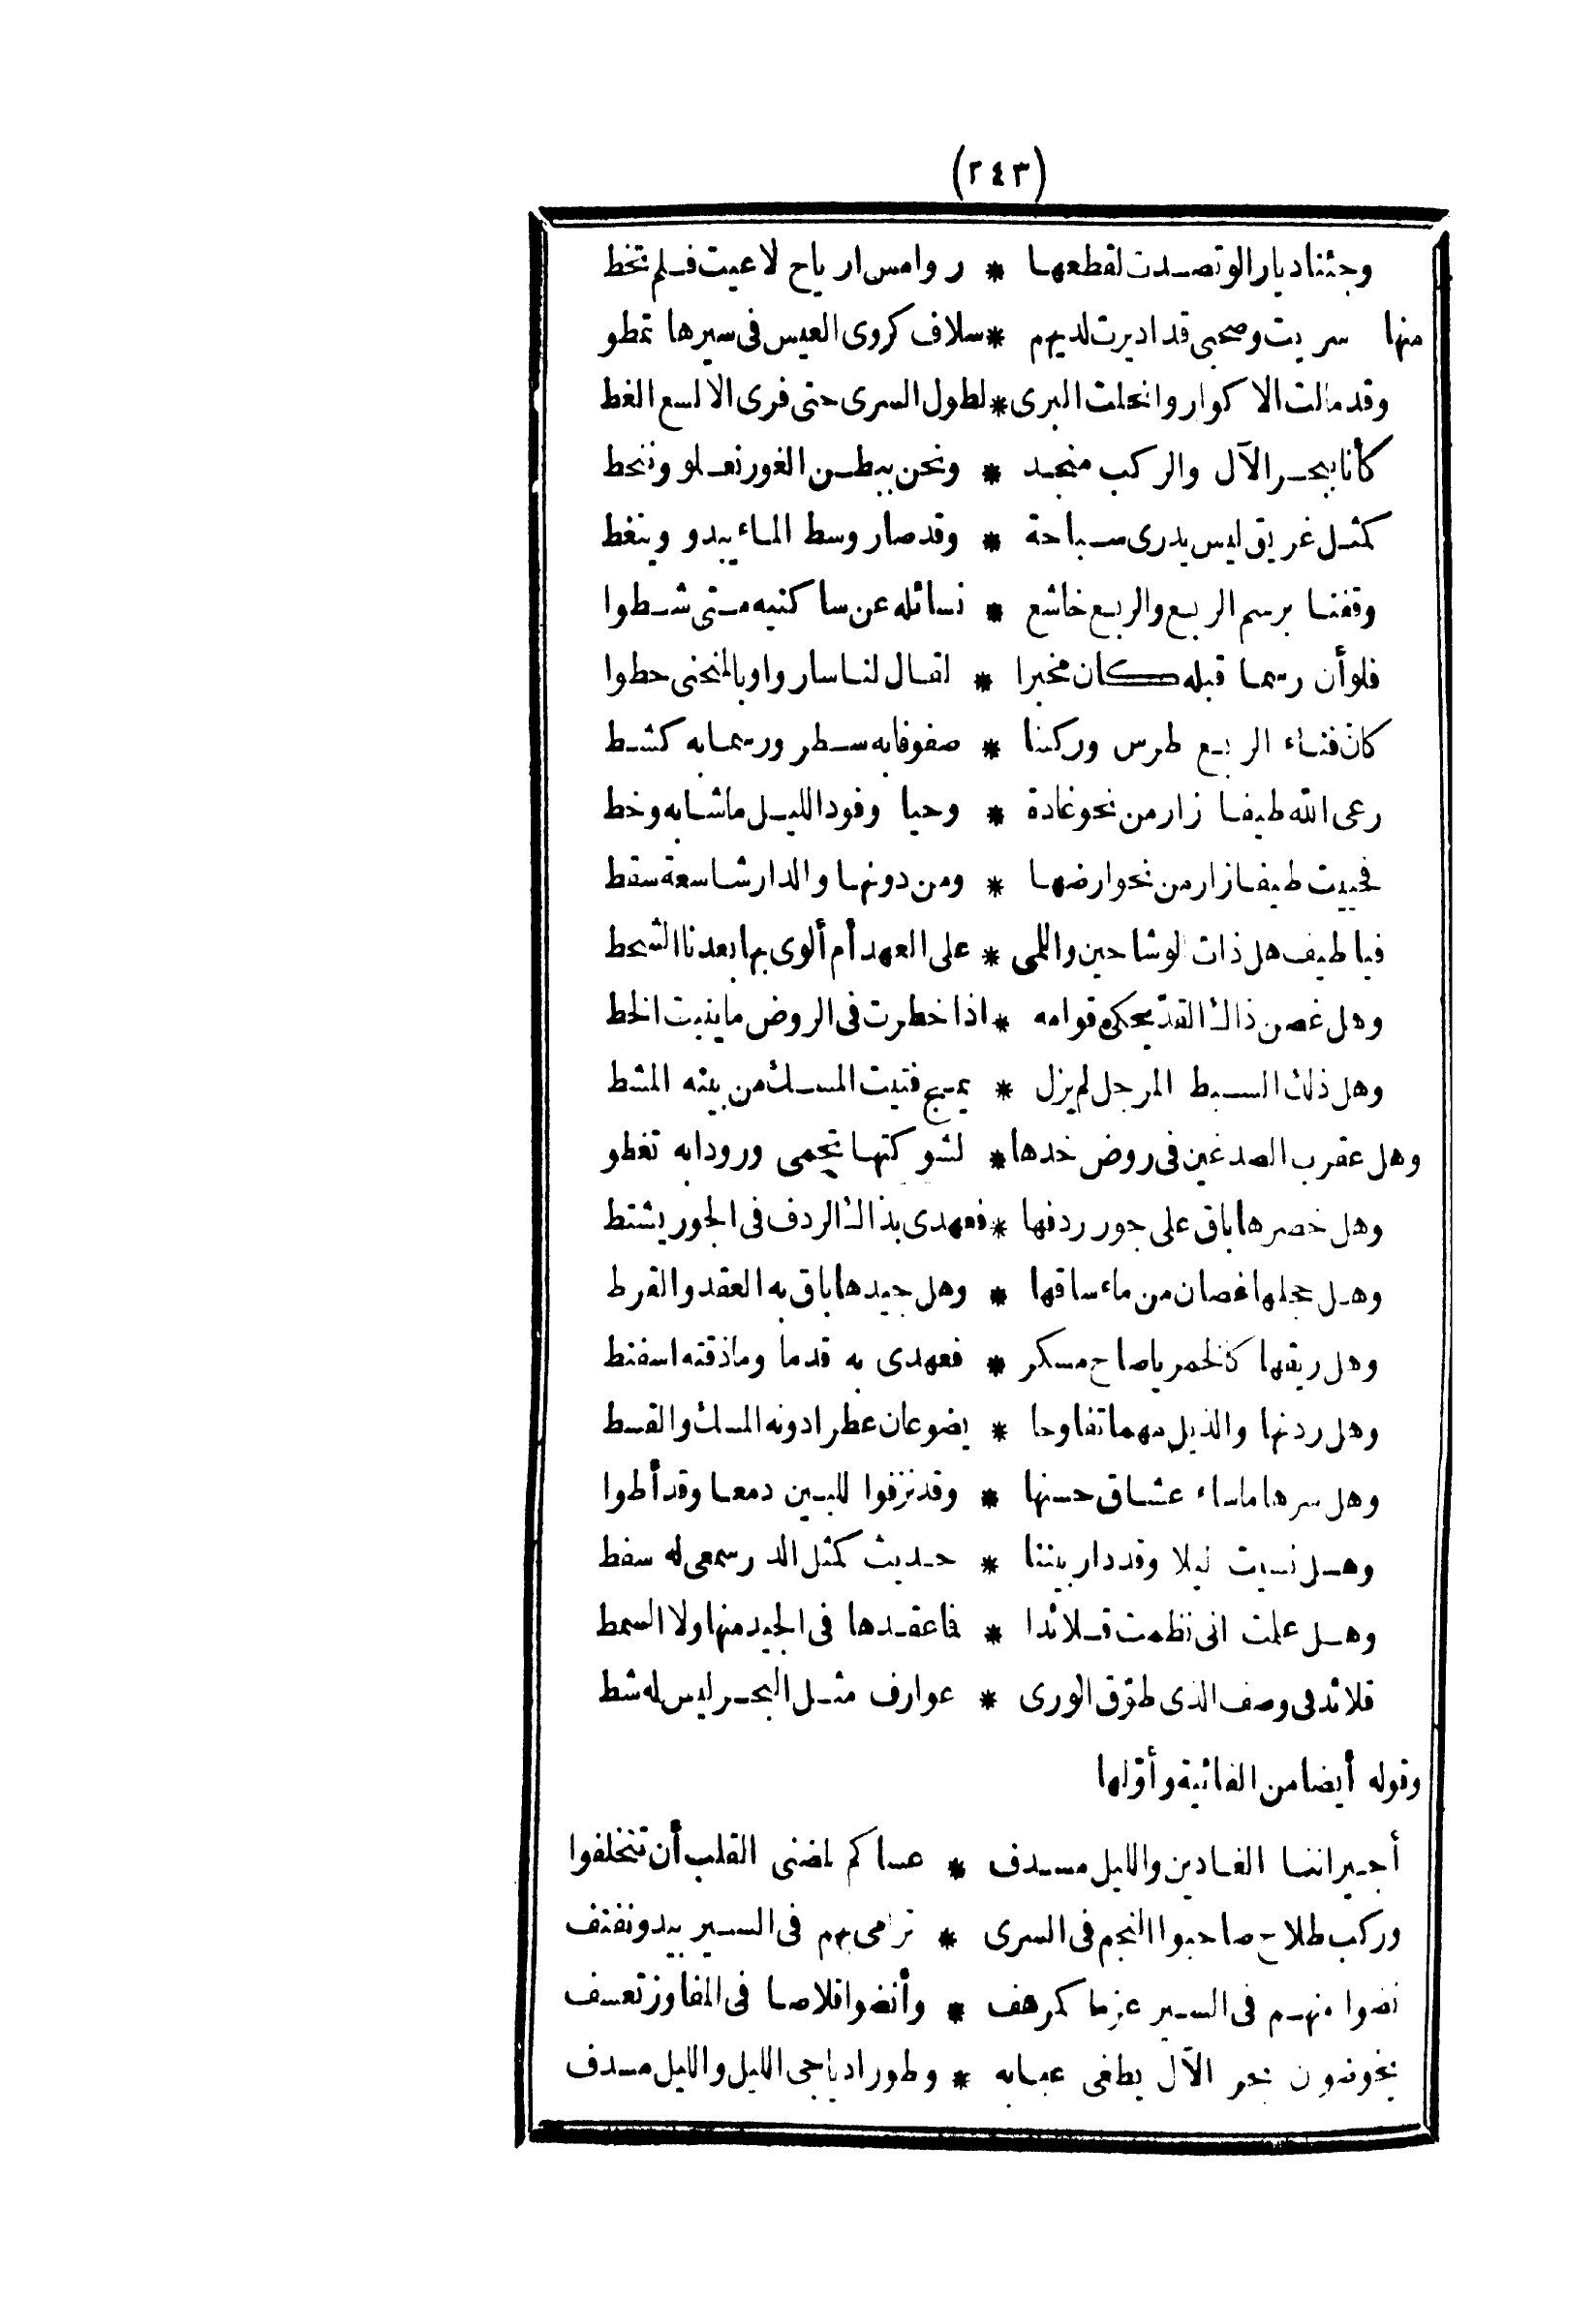 (٢٤٣)
وجئنا ديارا لو تصدت لقطعها * روامس ارياح لاعيت فلم تخط
منها سريت وصحبى قد اديرت لديهم * سلاف كروى العيس فى سيرها تمطو
وقد مالت الاكوار وانحلت البرى * لطول السرى حتى فرى الالسع الغط
كأنا ببحر الآل والركب منجد * ونحن ببطن الغور نعلو وننحط
كمثل غريق ليس يدرى سباحة * وقد صار وسط الماء يبدو وينغط
وقفنا برسم الربع والربع خاشع * نسائله عن ساكنيه متى شطوا
فلو أن رسما قبله كان مخبرا * لقال لنا ساروا وبالمنحنى حطوا
كان فناء الربع طرس وركبنا * صفوفا به سطر ورسما به كشط
رعى الله طيفا زار من نحو غادة * وحيا وفود الليل ما شابه وخط
فحييت طيفا زار من نحو ارضها * ومن دونها والدار شاسعة سقط
فيا طيف هل ذات الوشاحين واللمى * على العهد أم ألوى بها بعدنا الشحط
وهل غصن ذاك القدّ يحكى قوامه * اذا خطرت فى الروض ما ينبت الخط
وهل ذلك السبط المرجل لم يزل * يمج فتيت المسك من بينه المشط
وهل عقرب الصدغين فى روض خدها * لشوكتها تحمى ورودا به تغطو
وهل خصرها باق على جور ردفها * فعهدى بذاك الردف فى الجور يشتط
وهل حجلها غصان من ماء ساقها * وهل جيدها باق به العقد والقرط
وهل ريقها كالخمر يا صاح مسكر * فعهدى به قدما وما ذقته اسفنط
وهل ردنها والذيل مهما تفاوحا * يضوعان عطرا دونه المسك والقسط
وهل سرها ما ساء عشاق حسنها * وقد نزفوا للبين دمعا وقد أطوا
وهل نسيت ليلا وقد دار بيننا * حديث كمثل الدر سمعى له سفط
وهل علمت انى نظمت قلائدا * فما عقدها فى الجيد منها ولا السمط
قلائد فى وصف الذى طوّق الورى * عوارف مثل البحر ليس له شط
وقوله أيضا من الفائية وأوّلها
أجيراننا الغادين والليل مسدف * عساكم لمضنى القلب أن تتخلفوا
وركب طلاح صاحبوا النجم فى السرى * ترامى بهم فى السير بيد ونفنف
نضوا منهم فى السير عزما كمرهف * وأنضوا قلاصا فى المفاوز تعسف
يخوضون بحر الآل يطغى عبابه * وطورا دياجى الليل والليل مسدف